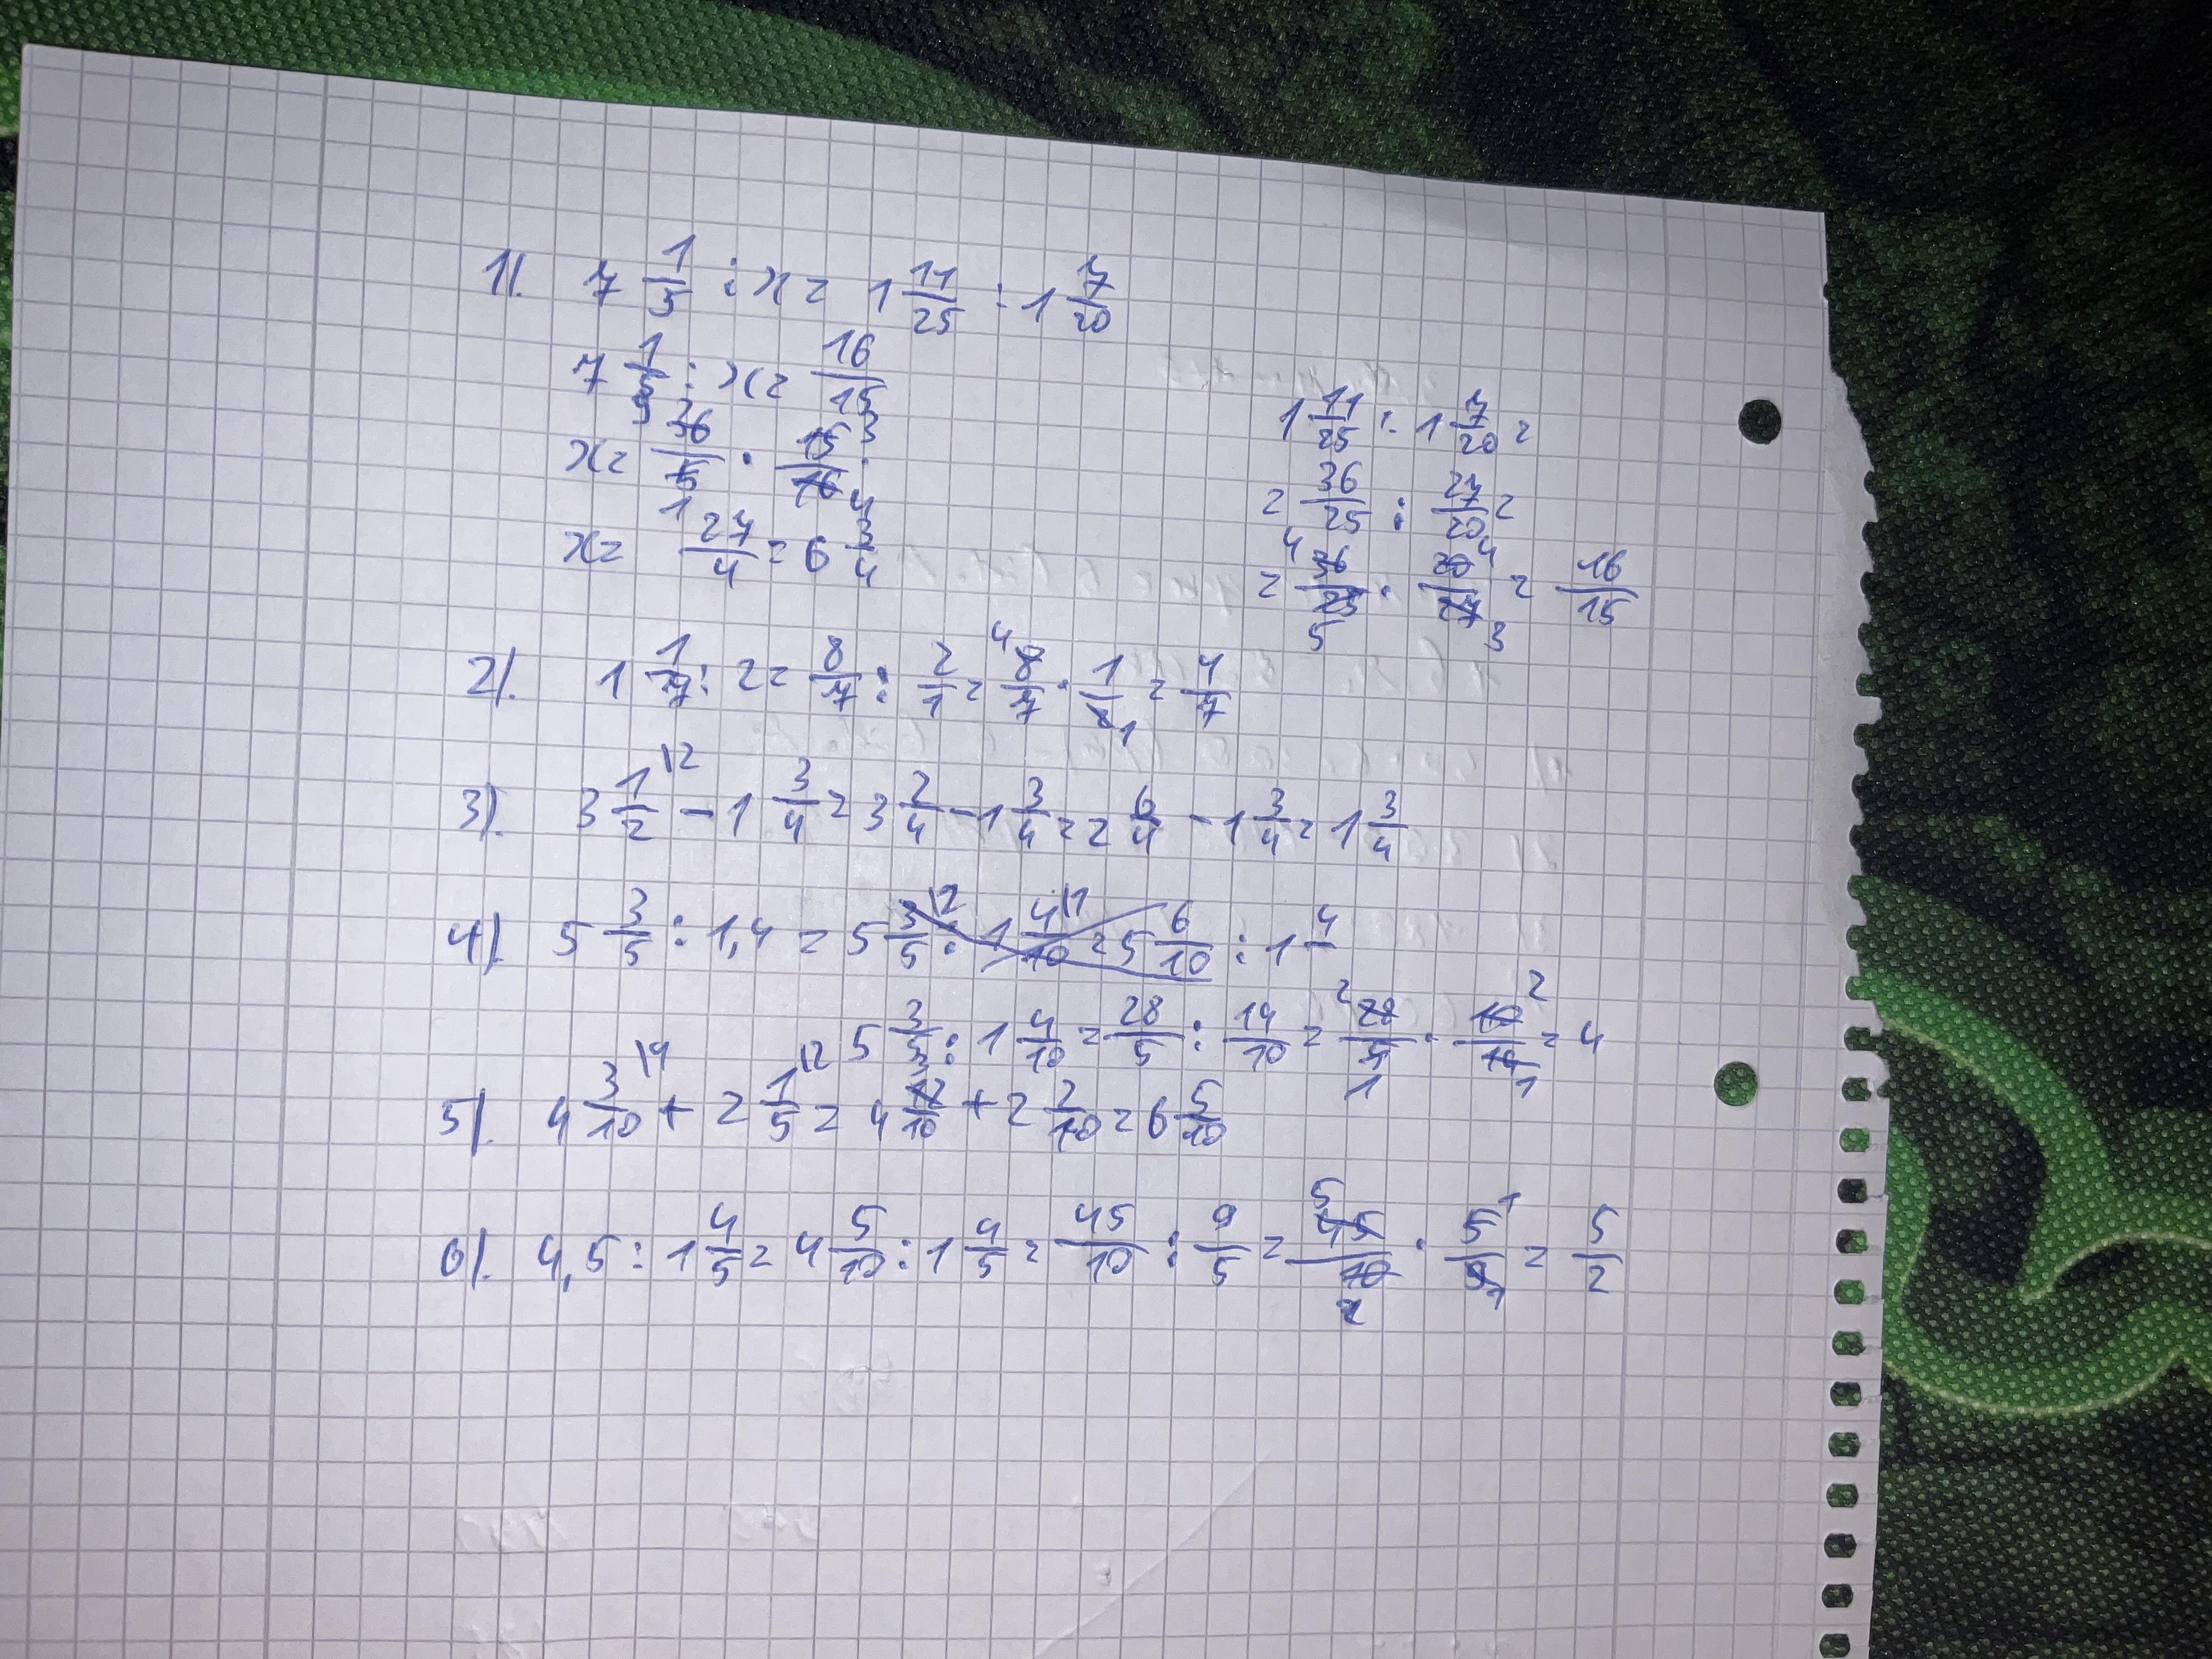 1). 7 1/5 : x = 1 11/25 : 1 7/20
7 1/5 : x = 16/15
x = 36/5 · 15/16
x = 27/4 = 6 3/4
1 11/25 : 1 7/20 =
= 36/25 : 27/20 =
= 36/25 · 20/27 = 16/15
2). 1 1/7 : 2 = 8/7 : 2/1 = 8/7 · 1/2 = 4/7
3). 3 1/2 \2 - 1 3/4 = 3 2/4 - 1 3/4 = 2 6/4 - 1 3/4 = 1 3/4
4). 5 3/5 : 1,4 = 5 3/5 \2 : 1 4/10 \1 = 5 6/10 : 1 4/
5 3/5 : 1 4/10 = 28/5 : 14/10 = 28/5 · 10/14 = 4
5). 4 3/10 + 2 1/5 \2 = 4 3/10 + 2 2/10 = 6 5/10
6). 4,5 : 1 4/5 = 4 5/10 : 1 4/5 = 45/10 : 9/5 = 45/10 · 5/9 = 5/2